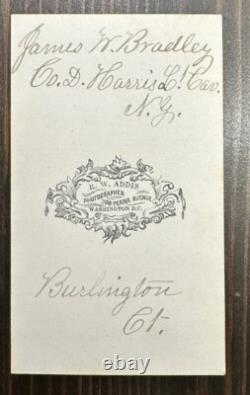 James W. Bradley
Co. D. Harris Lt. Cav.
N. Y.
R. W. ADDIS
PHOTOGRAPHER
308 PENNA AVENUE
WASHINGTON D.C.
Burlington
Ct.
ebay